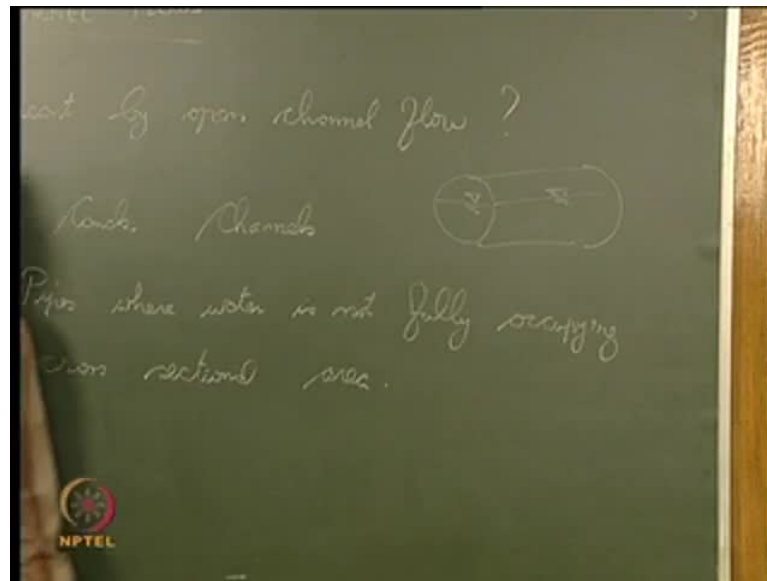 by open channel flow ?
Channels
Pipes where water is not fully occupying
cross sectional area.
NPTEL